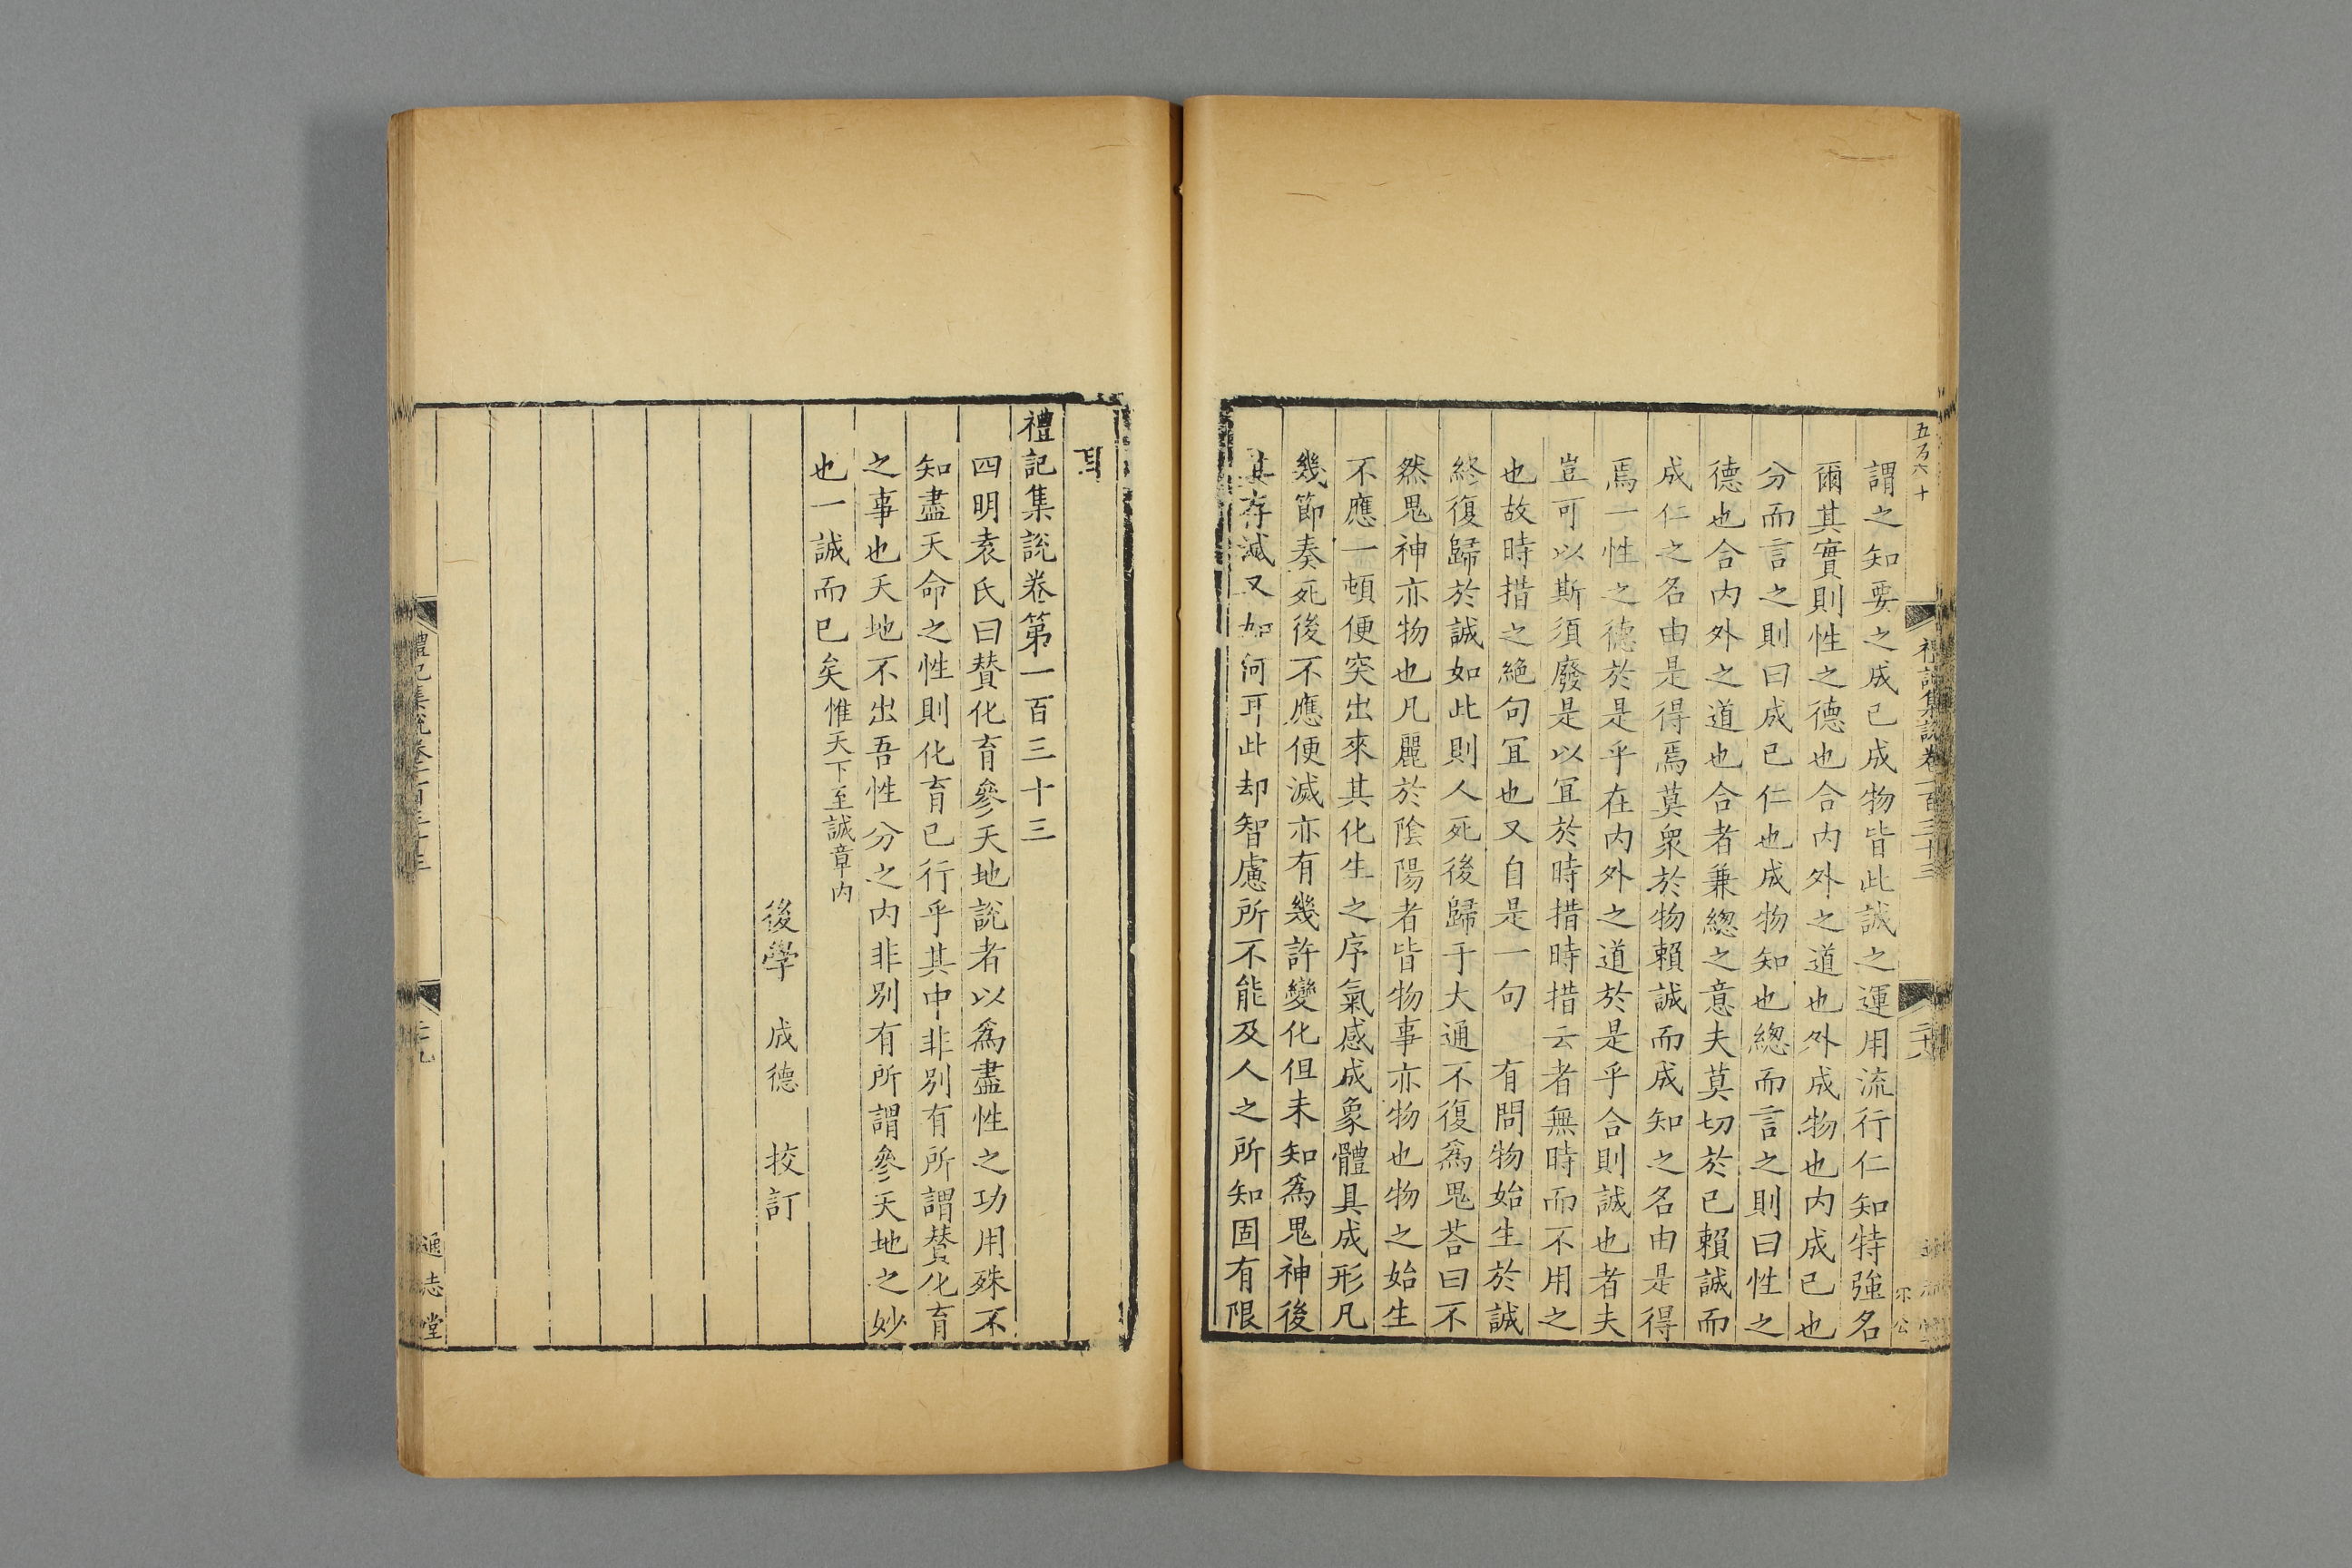 五万六十
禮記集說卷一百三十三
二十八
謂之知要之成已成物皆此誠之運用流行仁知特強名
爾其實則性之德也合內外之道也外成物也內成已也
分而言之則曰成已仁也成物知也總而言之則曰性之
德也合內外之道也合者兼總之意夫莫切於已賴誠而
成仁之名由是得焉莫衆於物賴誠而成知之名由是得
焉一性之德於是乎在內外之道於是乎合則誠也者夫
豈可以斯須廢是以冝於時措時措云者無時而不用之
也故時措之絶句冝也又自是一句　有問物始生於誠
終復歸於誠如此則人死後歸于大通不復爲鬼荅曰不
然鬼神亦物也凡麗於陰陽者皆物事亦物也物之始生
不應一頓便突出來其化生之序氣感成象體具成形凡
幾節奏死後不應便滅亦有幾許變化但未知爲鬼神後
其存滅又如何耳此却智慮所不能及人之所知固有限
耳
禮記集說卷第一百三十三
四明袁氏曰賛化育參天地說者以爲盡性之功用殊不
知盡天命之性則化育已行乎其中非別有所謂賛化育
之事也天地不出吾性分之內非別有所謂參天地之妙
也一誠而已矣惟天下至誠章內
後學　成德　挍訂
禮記集說卷一百三十三
二十九
通志堂